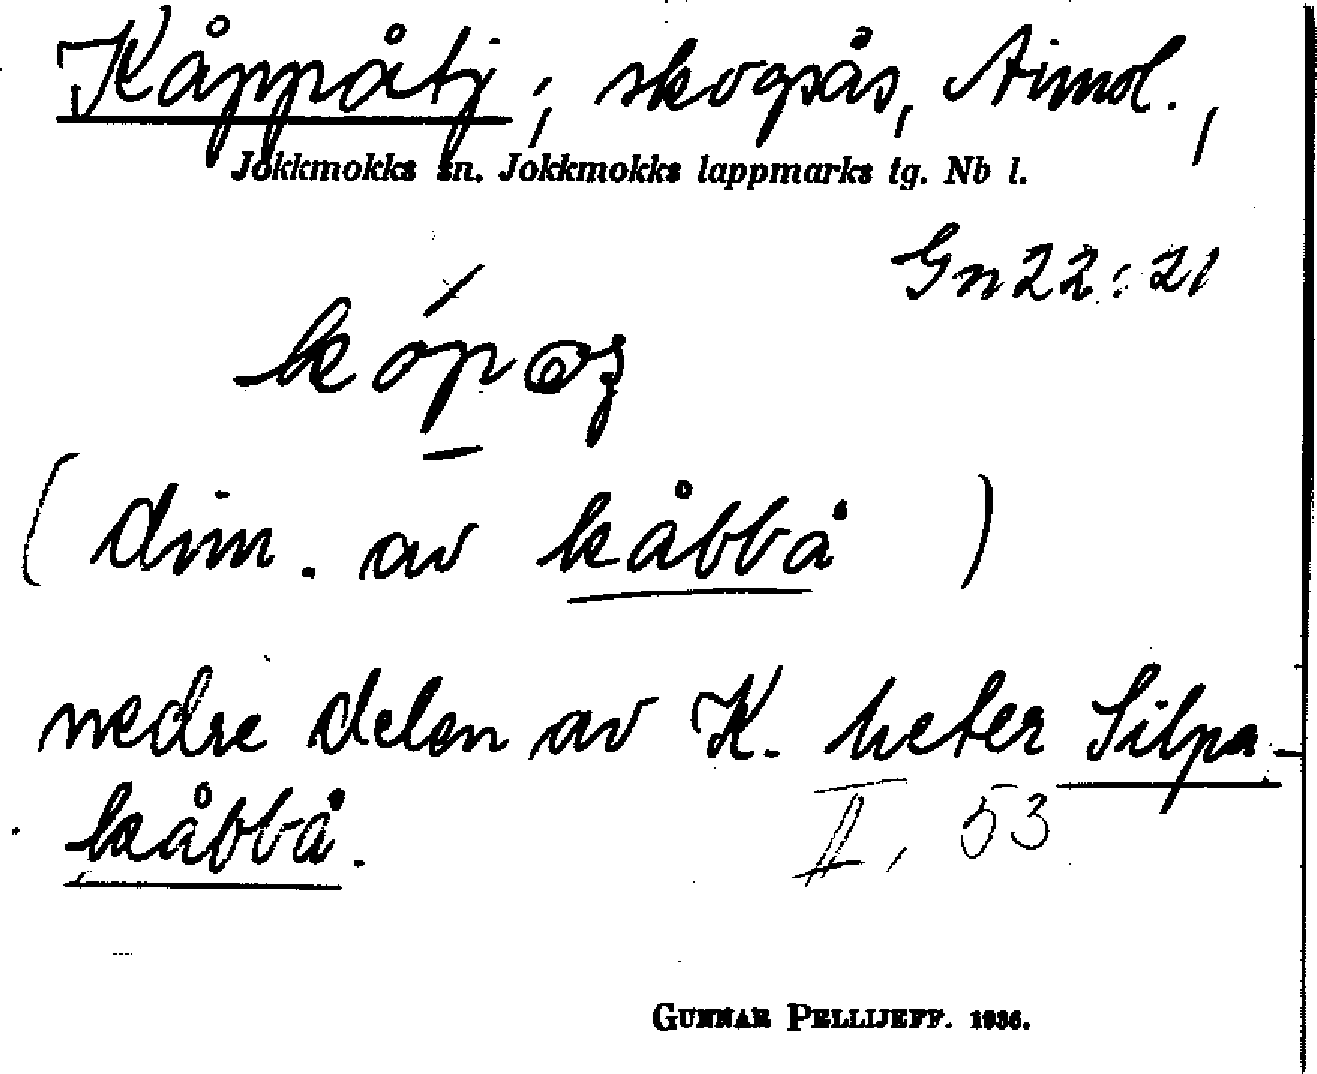 Kåppåtj, skogsås, Aimol.,
Jokkmokks sn. Jokkmokks lappmarks tg. Nb l.
Gn 22:21
(dim. av kåbbå)
nedre delen av K. heter Silpa-
kåbbå.
II, 53
GUNNAR PELLIJEFF. 1936.